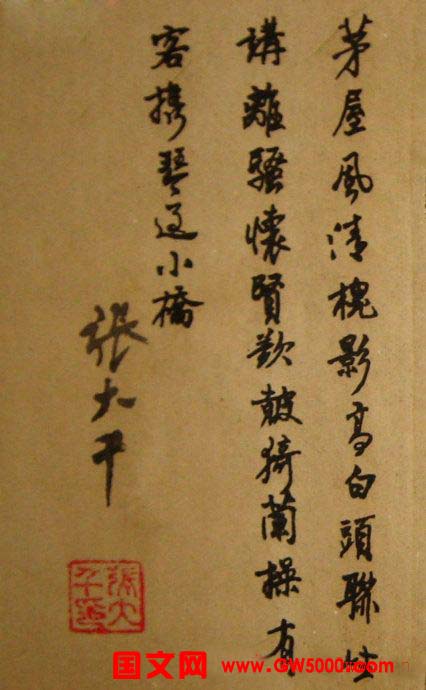 茅屋風清槐影高白頭聯坐
講離騷懷賢欲皷猗蘭操有
客攜琴過小橋
張大千
張大千印
国文网 www.GW5000.com